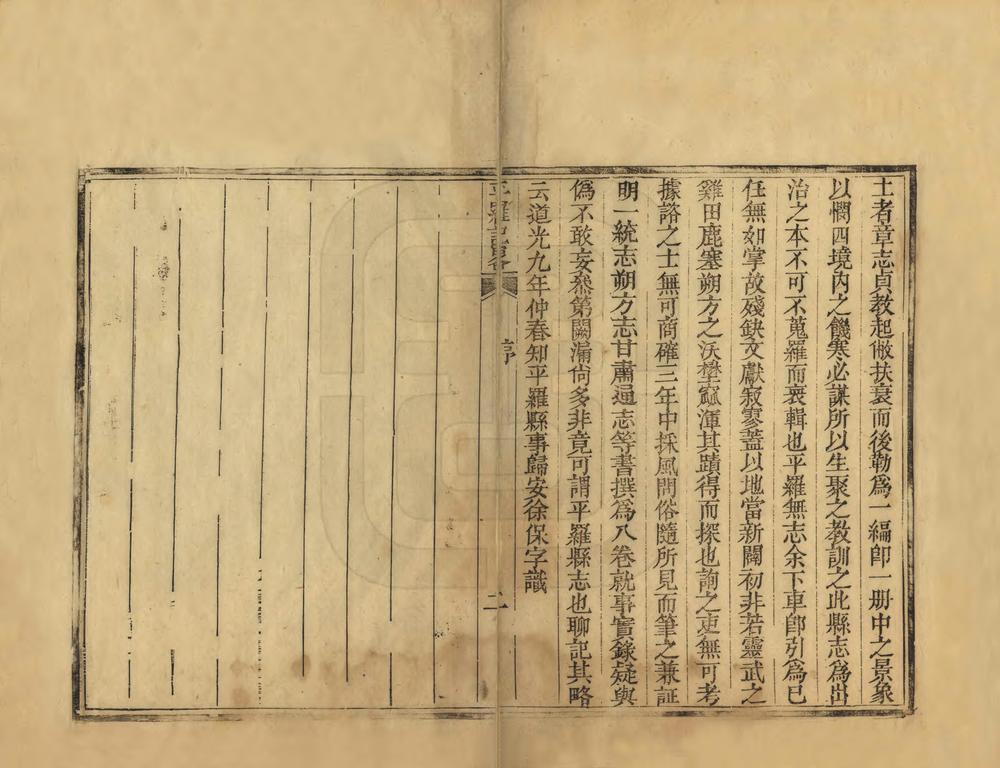 土者章志貞教起僘扶衰而後勒爲一編卽一册中之景象
以憫四境內之饑寒必謀所以生聚之教訓之此縣志爲出
治之本不可不蒐羅而裒輯也平羅無志余下車卽引爲已
任無如掌故殘缺文獻寂寥蓋以地當新闢初非若靈武之
雞田鹿塞朔方之沃壄窳渾其蹟得而探也詢之吏無可考
據諮之士無可商確三年中採風問俗隨所見而筆之兼証
明一統志朔方志甘肅通志等書撰爲八卷就事實錄疑與
僞不敢妄叅第闕漏尙多非竟可謂平羅縣志也聊記其略
云道光九年仲春知平羅縣事歸安徐保字識
平羅記畧
序
二